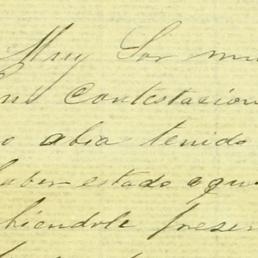 Muy Sor mu
en contestacion
o abia tenido
haber estado aqu
biendole preser